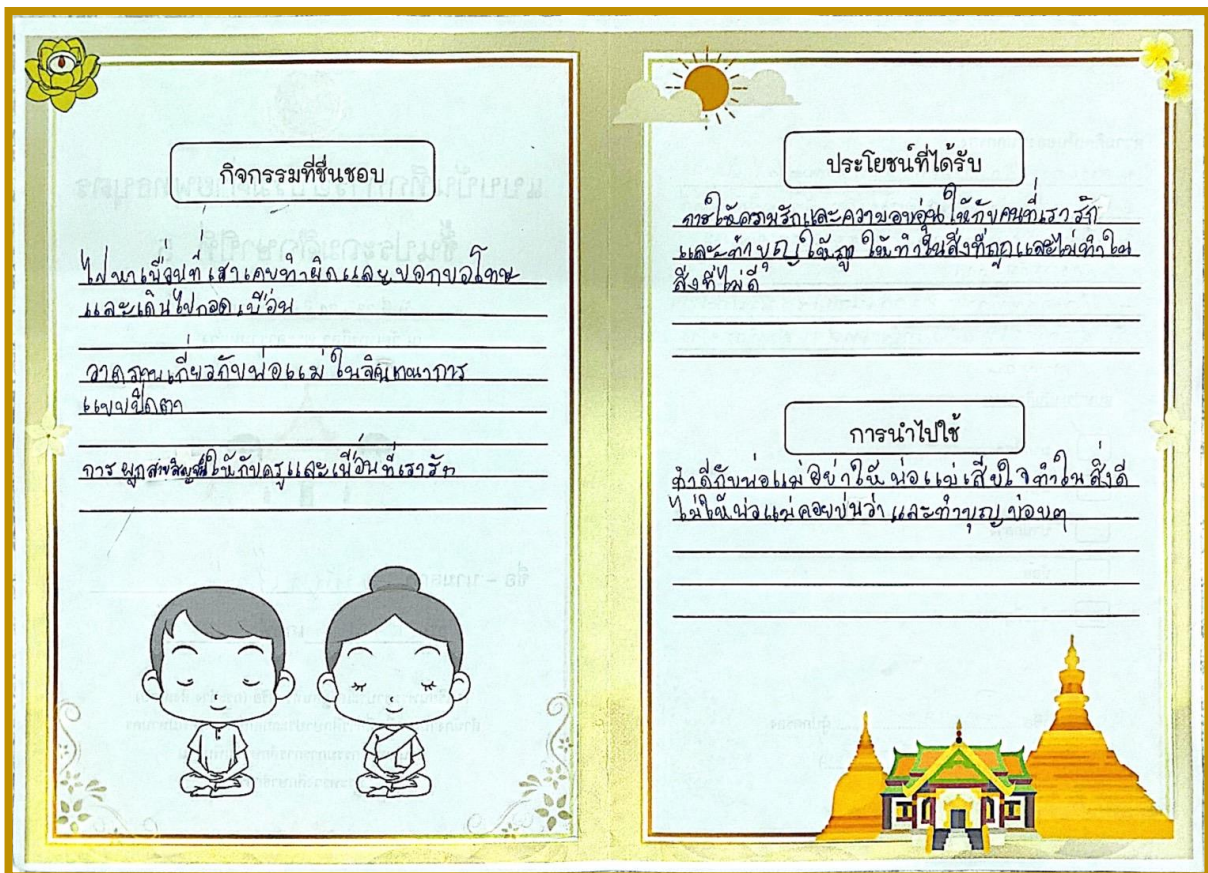 กิจกรรมที่ชื่นชอบ
ไปหาเพื่อนที่เราเคยทำผิดและบอกขอโทษ
และเดินไปกอดเพื่อน
วาดภาพเกี่ยวกับพ่อแม่ ในจินตนาการ
แบบปิดตา
การ ผูกสายสิญจน์ให้กับครูและเพื่อนที่เรารัก
ประโยชน์ที่ได้รับ
การให้ความรักและความอบอุ่น ให้กับคนที่เรา รัก
และทำบุญให้ ให้ทำในสิ่งที่ถูกและไม่ทำใน
สิ่งที่ไม่ดี
การนำไปใช้
ทำดีกับพ่อแม่ อย่าให้ พ่อแม่ เสียใจ ทำใน สิ่งดี
ไม่ให้พ่อแม่คอยบ่นว่า และทำบุญ บ่อยๆ